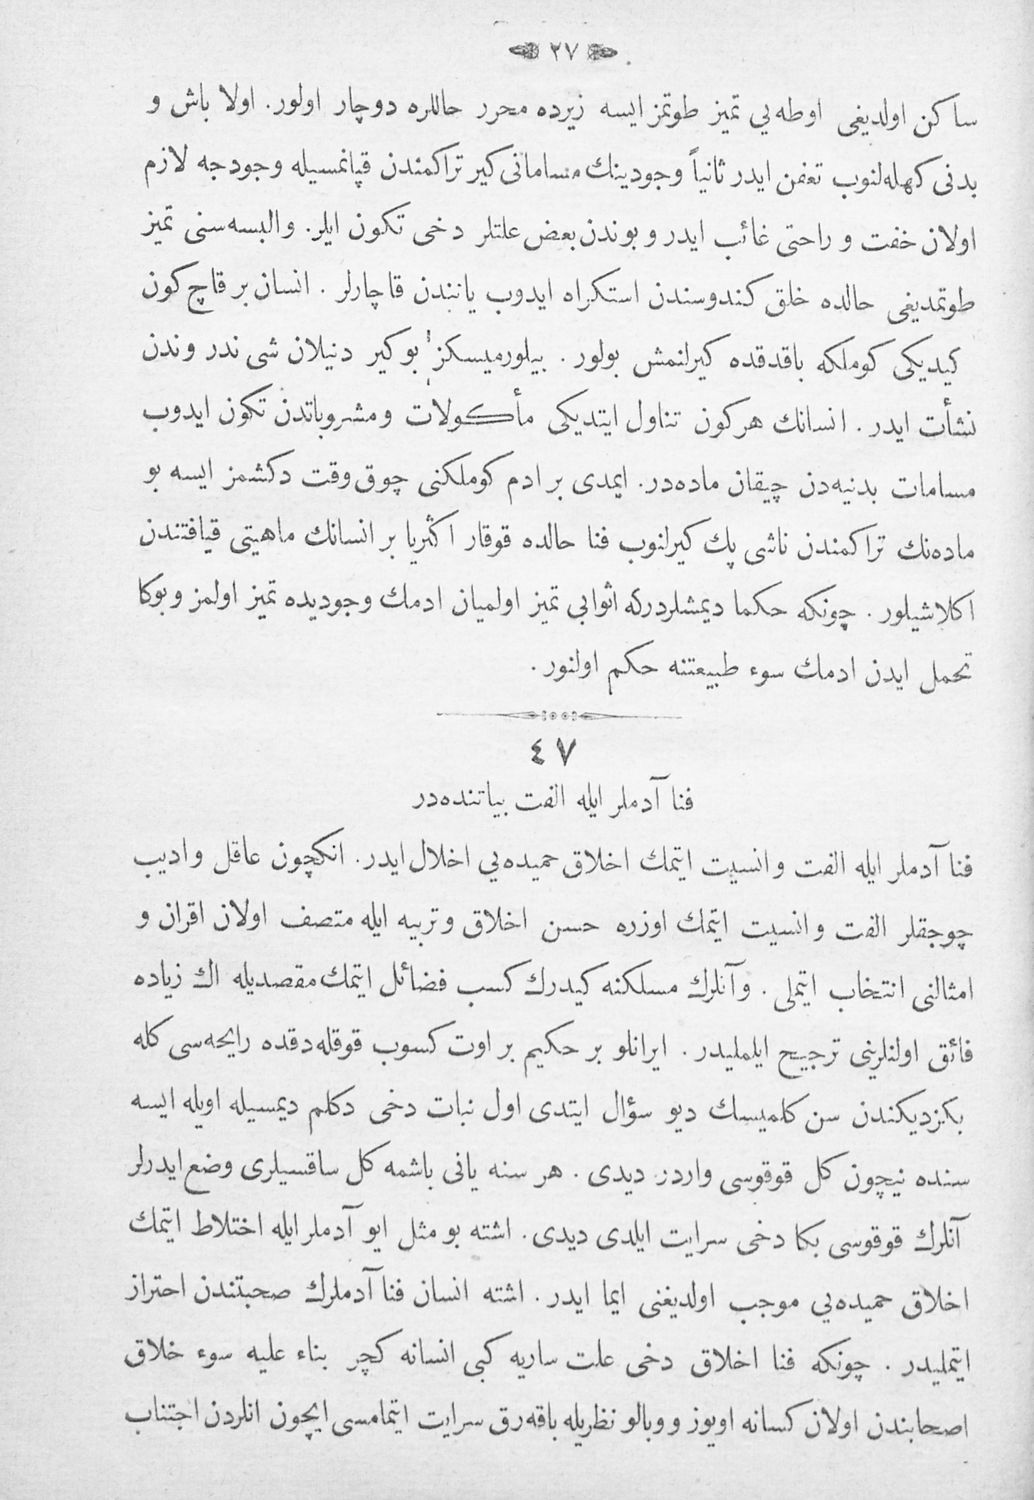 ٢٧
ساكن اولديغى اوطه‌يى تميز طوتمز ايسه زيرده محرر حاللره دوچار اولور. اولا باش و
بدنى كهله‌لنوب تعفن ايدر ثانياً وجودينك مساماتى كير تراكمندن قپانمسيله وجودجه لازم
اولان خفت و راحتى غائب ايدر و بوندن بعض علتلر دخى تكون ايلر. والبسه‌سنى تميز
طوتمديغى حالده خلق كندوسندن استكراه ايدوب يانندن قاچارلر . انسان بر قاچ كون
كيديكى كوملكه باقدقده كيرلنمش بولور . بيلورميسكز بو كير دنيلان شى ندر وندن
نشأت ايدر . انسانك هركون تناول ايتديكى مأكولات ومشروباتدن تكون ايدوب
مسامات بدنيه‌دن چيقان ماده‌در. ايمدى بر ادم كوملكنى چوق وقت دكشمز ايسه بو
ماده‌نك تراكمندن ناشى پك كيرلنوب فنا حالده قوقار اكثريا بر انسانك ماهيتى قيافتندن
اكلاشيلور . چونكه حكما ديمشلردركه اثوابى تميز اولميان ادمك وجوديده تميز اولمز و بوكا
تحمل ايدن ادمك سوء طبيعتنه حكم اولنور .
٤٧
فنا آدملر ايله الفت بياننده‌در
فنا آدملر ايله الفت وانسيت ايتمك اخلاق حميده‌يى اخلال ايدر. انكچون عاقل واديب
چوجقلر الفت وانسيت ايتمك اوزره حسن اخلاق وتربيه ايله متصف اولان اقران و
امثالنى انتخاب ايتملى . وآنلرك مسلكنه كيدرك كسب فضائل ايتمك مقصديله اك زياده
فائق اولنلرينى ترجيح ايلمليدر . ايرانلو بر حكيم بر اوت كسوب قوقله‌دقده رايحه‌سى كله
بكزديكندن سن كلميسك ديو سؤال ايتدى اول نبات دخى دكلم ديمسيله اويله ايسه
سنده نيچون كل قوقوسى واردر ديدى . هر سنه يانى باشمه كل ساقسيلرى وضع ايدرلر
آنلرك قوقوسى بكا دخى سرايت ايلدى ديدى. اشته بو مثل ايو آدملر ايله اختلاط ايتمك
اخلاق حميده‌يى موجب اولديغنى ايما ايدر . اشته انسان فنا آدملرك صحبتندن احتراز
ايتمليدر . چونكه فنا اخلاق دخى علت ساريه كبى انسانه كچر بناء عليه سوء خلاق
اصحابندن اولان كسانه اويوز ووبالو نظريله باقه‌رق سرايت ايتمامسى ايچون انلردن اجتناب